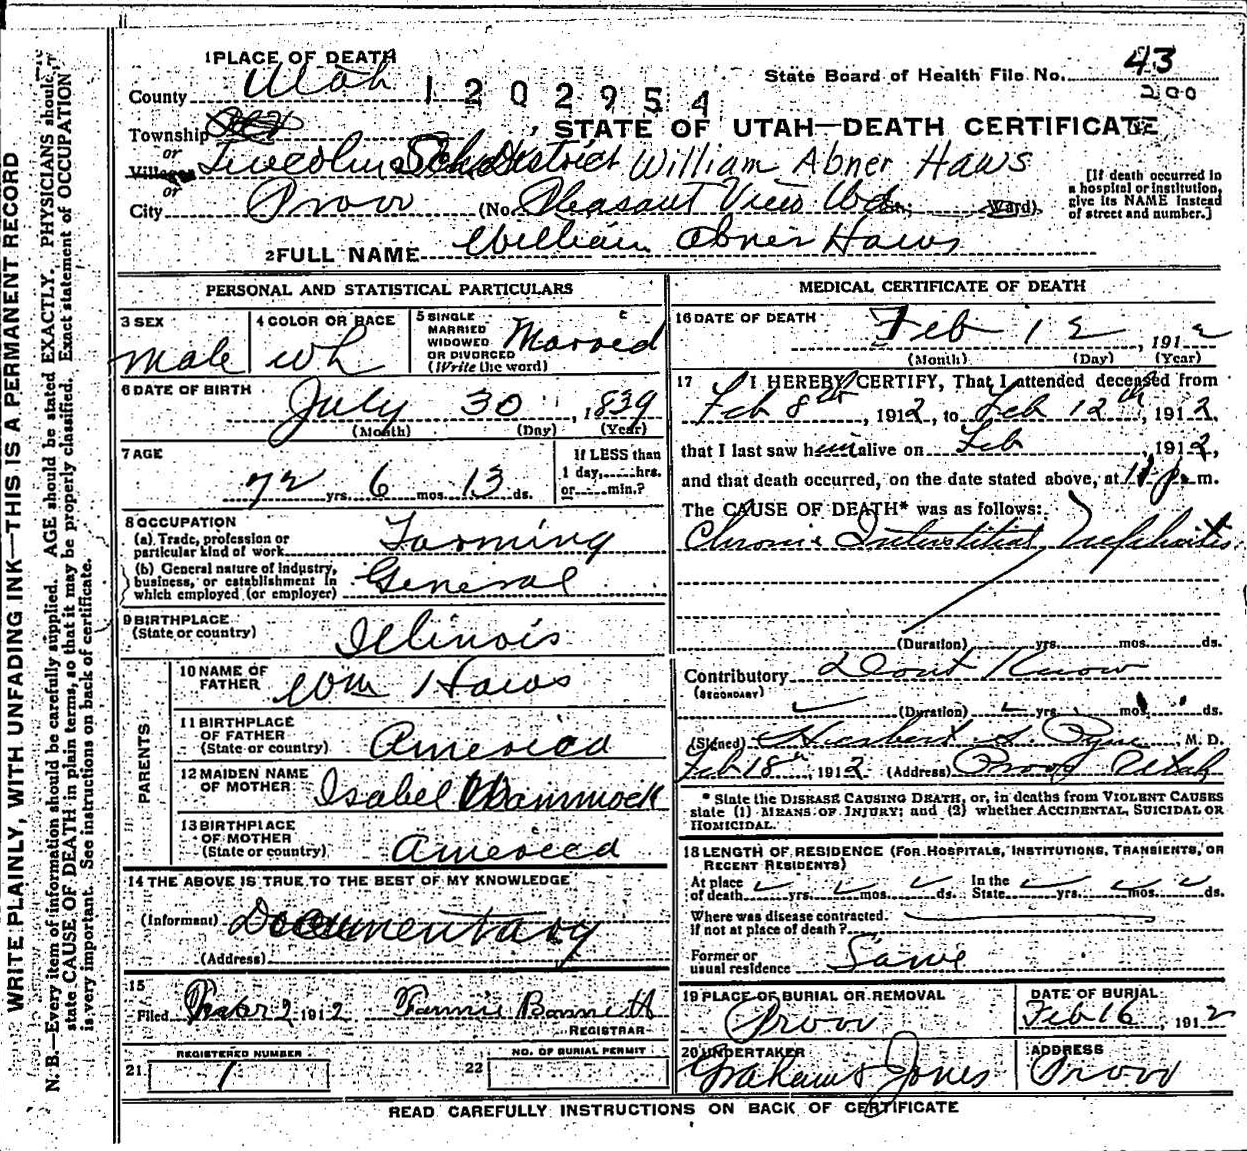 WRITE PLAINLY, WITH UNFADING INK—THIS IS A PERMANENT RECORD
N. B.—Every item of information should be carefully supplied. AGE should be stated EXACTLY. PHYSICIANS should
state CAUSE OF DEATH in plain terms, so that it may be properly classified. Exact statement of OCCUPATION
is very important. See instructions on back of certificate.
1 PLACE OF DEATH
State Board of Health File No. 43
200
County Utah 1202954
Township
STATE OF UTAH—DEATH CERTIFICATE
or
Village Lincoln Sch. District William Abner Haws
or
City Provo (No. Pleasant View Wd St.; Ward)
[If death occurred in
a hospital or institution,
give its NAME instead
of street and number.]
2 FULL NAME William Abner Haws
PERSONAL AND STATISTICAL PARTICULARS
3 SEX
male
4 COLOR OR RACE
wh
5 SINGLE
MARRIED
WIDOWED
OR DIVORCED
(Write the word)
Married
6 DATE OF BIRTH
July 30, 1839
(Month) (Day) (Year)
7 AGE
72 yrs. 6 mos. 13 ds.
If LESS than
1 day,.....hrs.
or.....min.?
8 OCCUPATION
(a) Trade, profession or
particular kind of work Farming
(b) General nature of Industry,
business, or establishment in
which employed (or employer) General
9 BIRTHPLACE
(State or country) Illinois
PARENTS
10 NAME OF
FATHER Wm Haws
11 BIRTHPLACE
OF FATHER
(State or country) America
12 MAIDEN NAME
OF MOTHER Isabel Hammock
13 BIRTHPLACE
OF MOTHER
(State or country) America
14 THE ABOVE IS TRUE TO THE BEST OF MY KNOWLEDGE
(Informant) Documentary
(Address)
15
Filed Mar 2 1912 Fannie Bennett
REGISTRAR
REGISTERED NUMBER
21 1
NO. OF BURIAL PERMIT
22
MEDICAL CERTIFICATE OF DEATH
16 DATE OF DEATH
Feb 12, 1912
(Month) (Day) (Year)
17 I HEREBY CERTIFY, That I attended deceased from
Feb 8th, 1912, to Feb 12th, 1912,
that I last saw him alive on Feb, 1912,
and that death occurred, on the date stated above, at 11 p. m.
The CAUSE OF DEATH* was as follows:
Chronic Interstitial Nephritis
(Duration) yrs. mos. ds.
Contributory Dont Know
(SECONDARY)
(Duration) yrs. mos. ds.
(Signed) Herbert S. Pyne, M. D.
Feb 18th, 1912 (Address) Provo Utah
* State the DISEASE CAUSING DEATH, or, in deaths from VIOLENT CAUSES
state (1) MEANS OF INJURY; and (2) whether ACCIDENTAL, SUICIDAL OR
HOMICIDAL.
18 LENGTH OF RESIDENCE (FOR HOSPITALS, INSTITUTIONS, TRANSIENTS, OR
RECENT RESIDENTS)
At place
of death yrs. mos. ds.
In the
State yrs. mos. ds.
Where was disease contracted.
If not at place of death?
Former or
usual residence Same
19 PLACE OF BURIAL OR REMOVAL
Provo
DATE OF BURIAL
Feb 16, 1912
20 UNDERTAKER
Graham & Jones
ADDRESS
Provo
READ CAREFULLY INSTRUCTIONS ON BACK OF CERTIFICATE